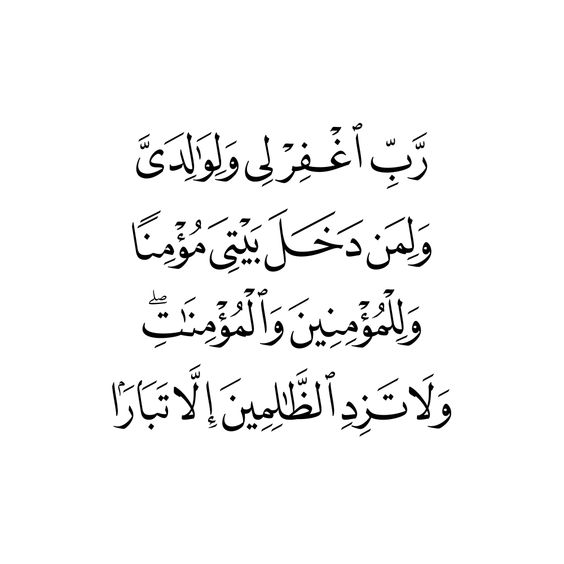 رَّبِّ ٱغْفِرْ لِى وَلِوَٰلِدَىَّ
وَلِمَن دَخَلَ بَيْتِىَ مُؤْمِنًا
وَلِلْمُؤْمِنِينَ وَٱلْمُؤْمِنَٰتِۖ
وَلَا تَزِدِ ٱلظَّٰلِمِينَ إِلَّا تَبَارَۢا